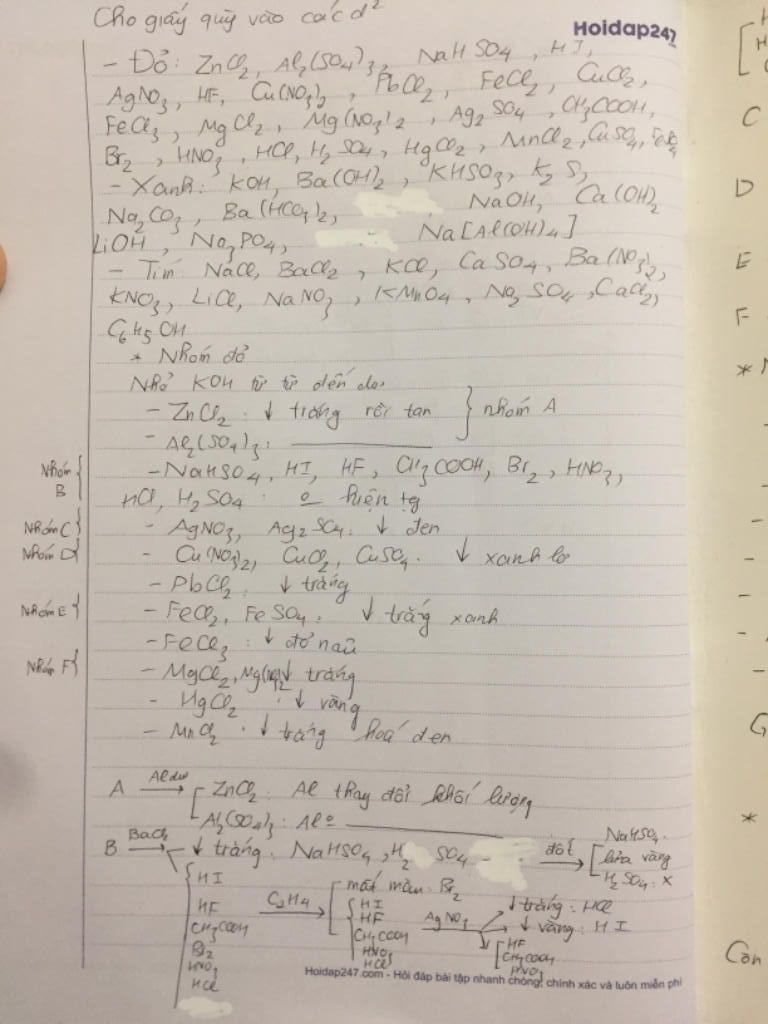 Cho giấy quỳ vào các d²
Hoidap247
- Đỏ: ZnCl2, Al2(SO4)3, NaHSO4, HI,
AgNO3, HF, Cu(NO3)2, PbCl2, FeCl2, CuCl2,
FeCl3, MgCl2, Mg(NO3)2, Ag2SO4, CH3COOH,
Br2, HNO3, HCl, H2SO4, HgCl2, MnCl2, CuSO4, FeSO4
- Xanh: KOH, Ba(OH)2, KHSO3, K2S,
Na2CO3, Ba(HCO3)2, NaOH, Ca(OH)2
LiOH, Na3PO4, Na[Al(OH)4]
- Tím: NaCl, BaCl2, KCl, CaSO4, Ba(NO3)2,
KNO3, LiCl, NaNO3, KMnO4, Na2SO4, CaCl2,
C6H5OH
* Nhóm đỏ
Nhỏ KOH từ từ đến dư
- ZnCl2: ↓ trắng rồi tan } nhóm A
- Al2(SO4)3: ———
Nhóm B { - NaHSO4, HI, HF, CH3COOH, Br2, HNO3,
HCl, H2SO4: o hiện tg
Nhóm C { - AgNO3, Ag2SO4: ↓ đen
Nhóm D { - Cu(NO3)2, CuCl2, CuSO4. ↓ xanh lơ
- PbCl2: ↓ trắng
Nhóm E { - FeCl2, FeSO4: ↓ trắng xanh
- FeCl3: ↓ đỏ nâu
Nhóm F { - MgCl2, Mg(NO3)2 ↓ trắng
- HgCl2: ↓ vàng
- MnCl2: ↓ trắng hoá đen
A Al dư → [ ZnCl2: Al thay đổi khối lượng
Al2(SO4)3: Al o ———
B BaCl2 → ↓ trắng: NaHSO4, H2SO4 đốt → [ NaHSO4: lửa vàng
H2SO4: X
{ HI
HF
CH3COOH
Br2
HNO3
HCl
C2H4 → [ mất màu: Br2
{ HI
HF
CH3COOH
HNO3
HCl
AgNO3 → ↓ trắng: HCl
↓ vàng: HI
[ HF
CH3COOH
HNO3
Hoidap247.com - Hỏi đáp bài tập nhanh chóng, chính xác và luôn miễn phí
[ H
H
C
D
E
F
* N
G
*
Còn